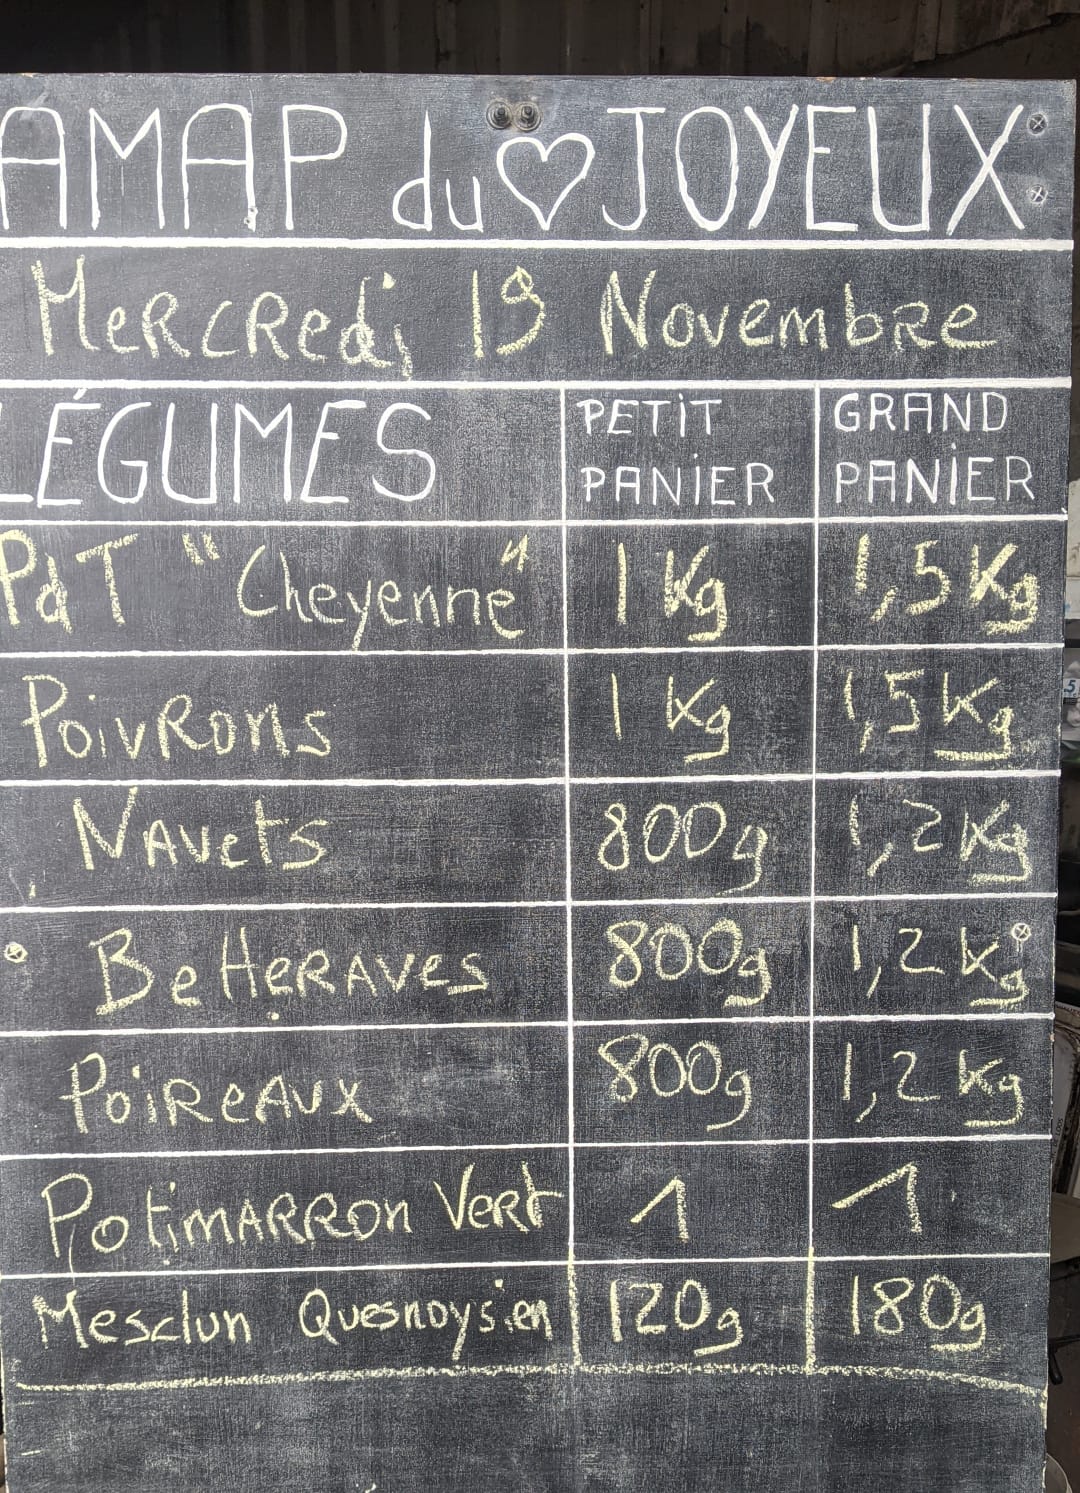 AMAP du ♡ JOYEUX
Mercredi 19 Novembre
LÉGUMES PETIT PANIER GRAND PANIER
PdT "Cheyenne" 1 Kg 1,5 Kg
Poivrons 1 Kg 1,5 Kg
Navets 800g 1,2 Kg
Betteraves 800g 1,2 Kg
Poireaux 800g 1,2 Kg
Potimarron Vert 1 1
Mesclun Quesnoysien 120g 180g